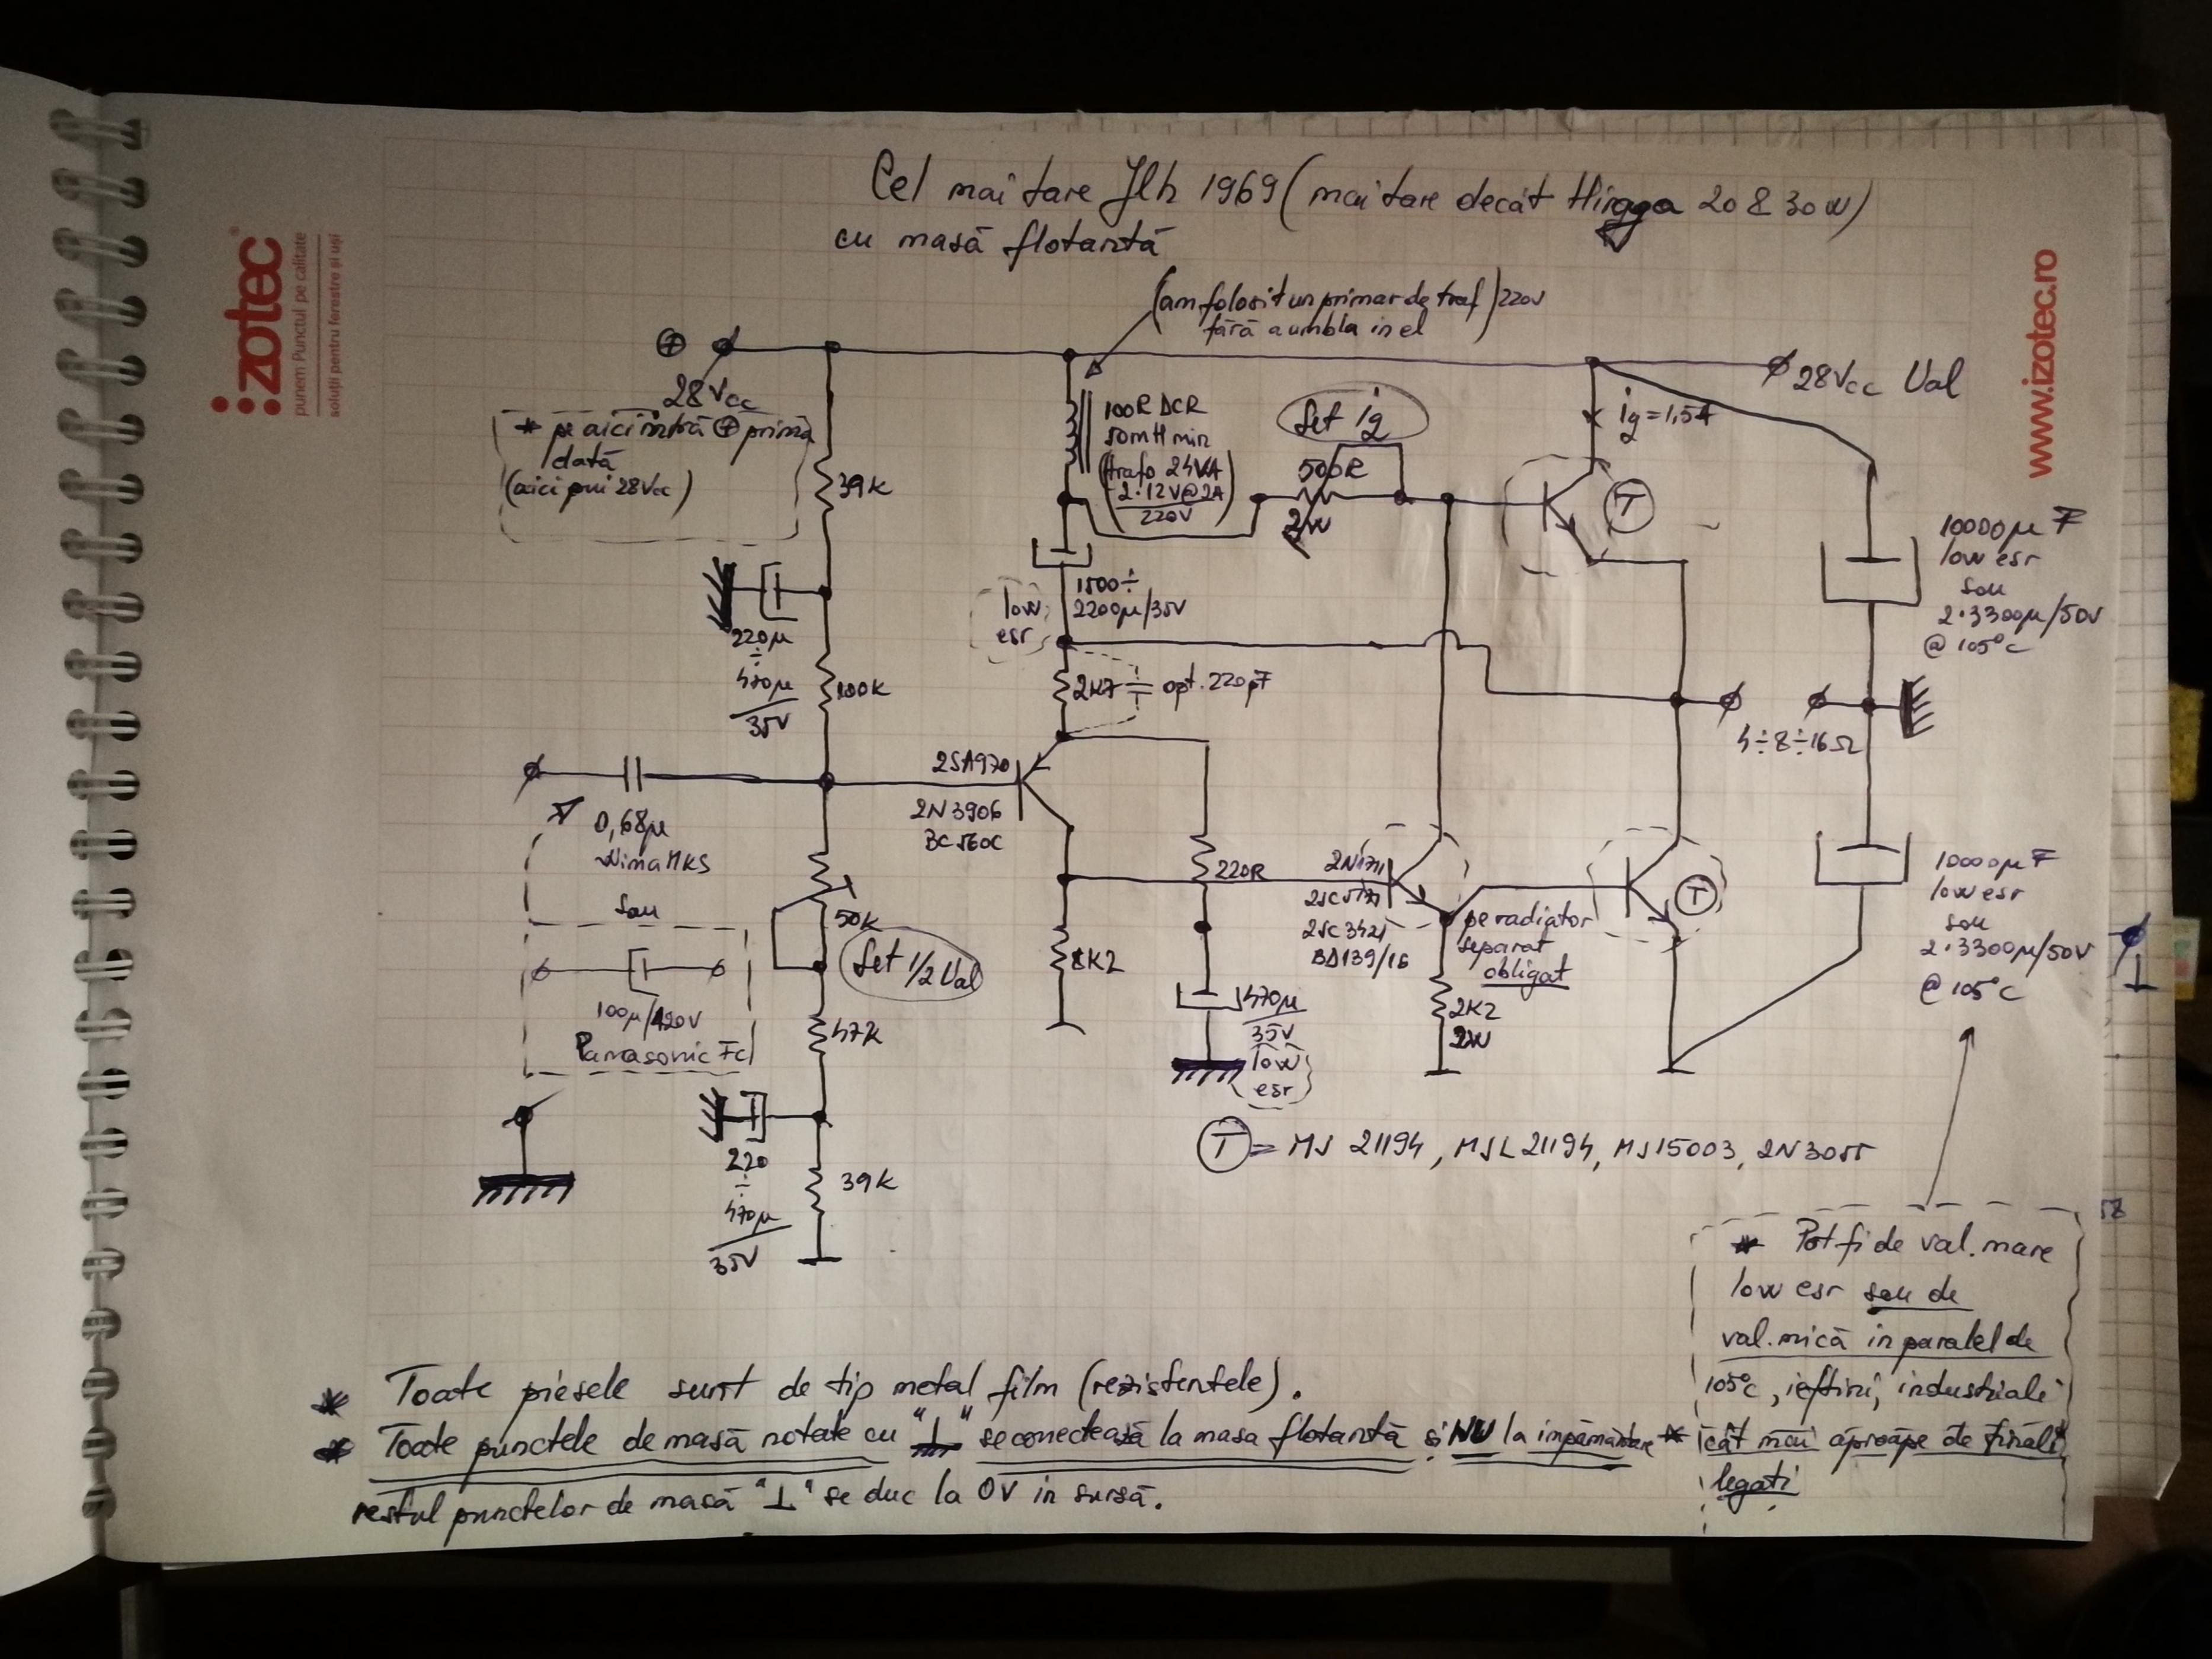 Cel mai tare Jlh 1969 (mai tare decât Hiraga 20 & 30w)
cu masă flotantă
izotec®
punem Punctul pe calitate
soluții pentru ferestre și uși
www.izotec.ro
(am folosit un primar de traf) 220V
fără a umbla in el
⊕
28Vcc
28Vcc Ual
* pe aici intră ⊕ prima
dată
(aici pui 28Vcc)
39K
100R DCR
50mH min
(trafo 24VA
2·12V@2A
220V)
Set ig
500R
2W
ig=1,5A
T
10000µF
low esr
sau
2·3300µ/50V
@ 105°C
220µ
÷
470µ
35V
100K
low
esr
1500÷
2200µ/35V
2K7
opt. 220pF
4÷8÷16Ω
2SA970
2N3906
BC560C
0,68µ
Wima MKS
sau
100µ/420V
Panasonic Fc
50K
Set 1/2 Ual
47K
8K2
220R
470µ
35V
low
esr
2N1711
2SC5171
2SC3421
BD139/16
pe radiator
separat
obligat
2K2
2W
T
10000µF
low esr
sau
2·3300µ/50V
@ 105°C
220
÷
470µ
35V
39K
T = MJ 21194, MJL21194, MJ15003, 2N3055
* Pot fi de val. mare
low esr sau de
val. mică in paralel de
105°C, ieftini, industriali
* cât mai aproape de finali
legați
* Toate piesele sunt de tip metal film (rezistentele).
* Toate punctele de masă notate cu "⊥" se conectează la masa flotantă și NU la impământare
restul punctelor de masă "⊥" se duc la 0V in sursă.